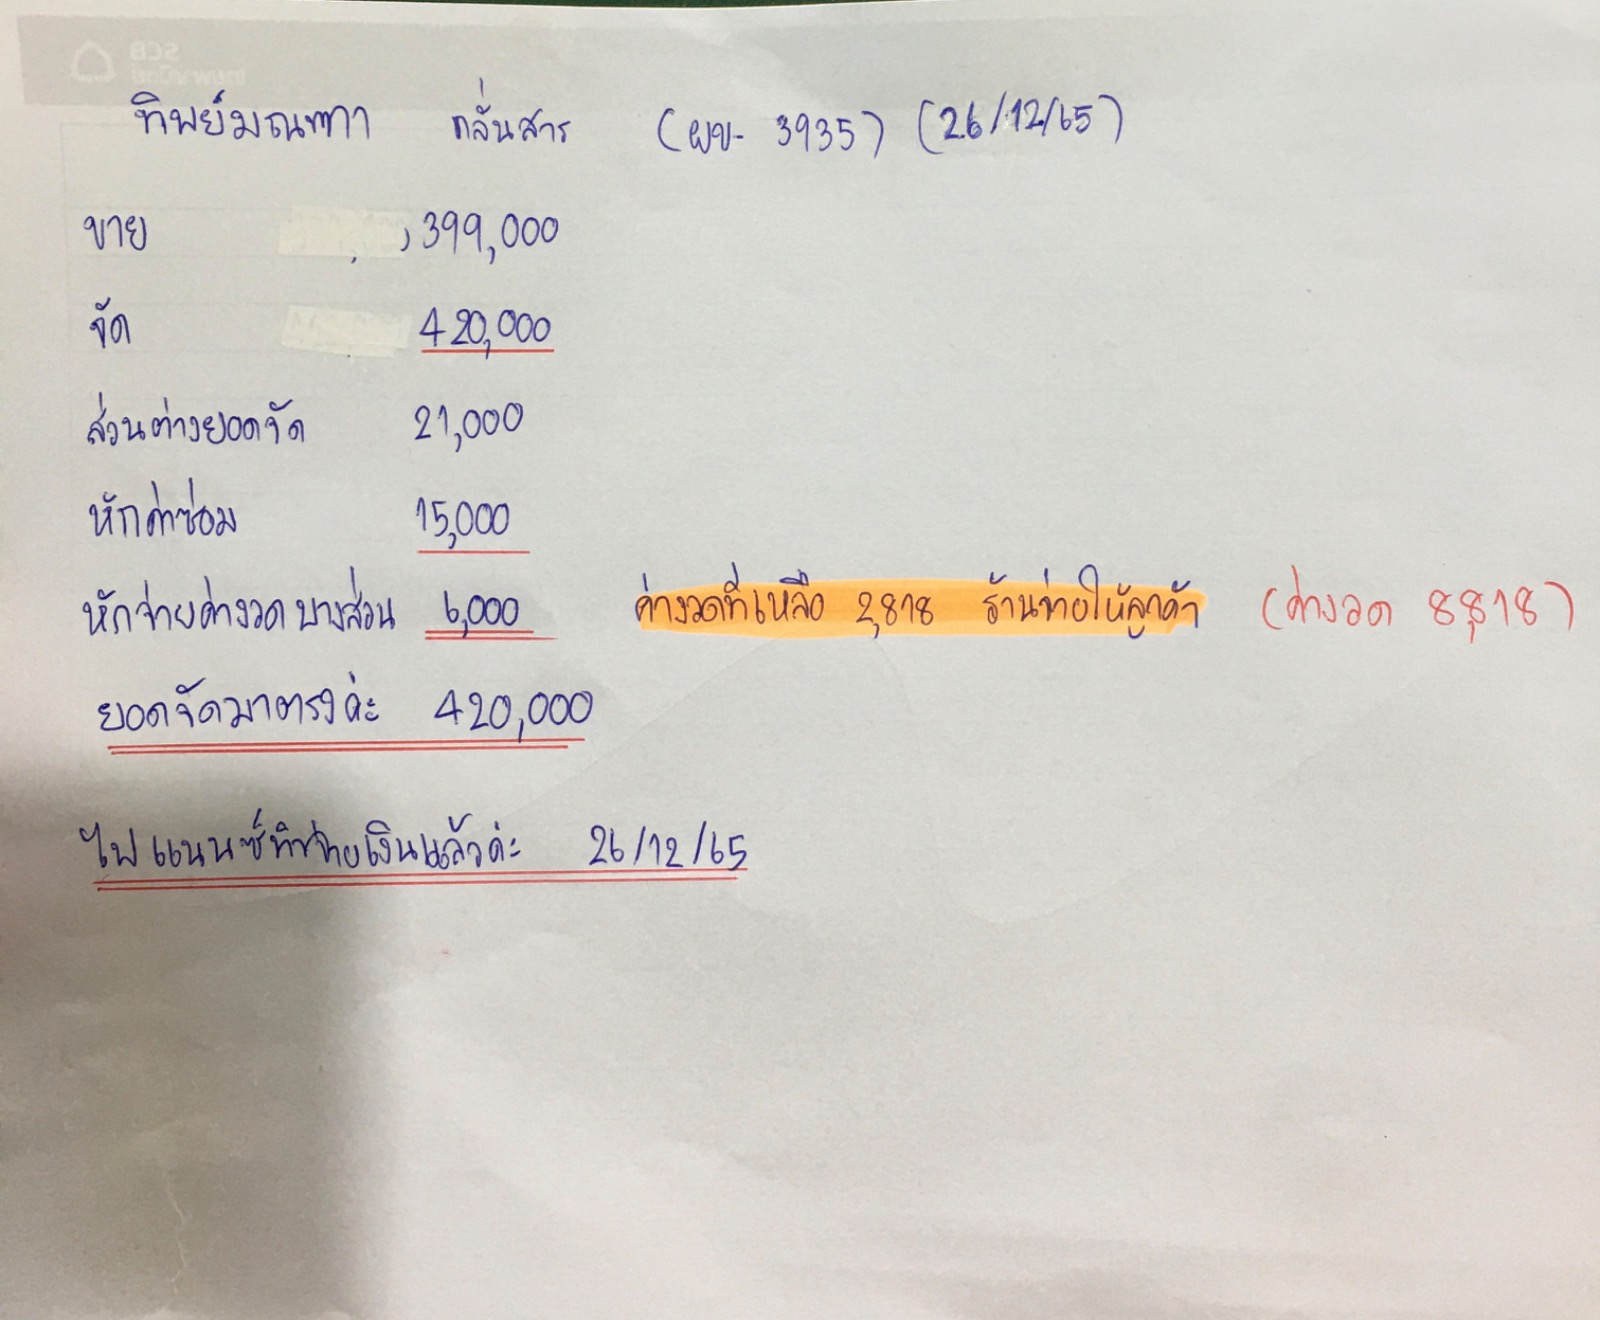 ทิพย์มณฑา กลั่นสาร (ผข- 3935) (26/12/65)
ขาย 399,000
จัด 420,000
ส่วนต่างยอดจัด 21,000
หักค่าซ่อม 15,000
หักจ่ายค่างวดบางส่วน 6,000 ค่างวดที่เหลือ 2,818 ร้านจ่ายให้ลูกค้า (ค่างวด 8,818)
ยอดจัดมาตรงค่ะ 420,000
ไฟแนนซ์ทำจ่ายเงินแล้วค่ะ 26/12/65